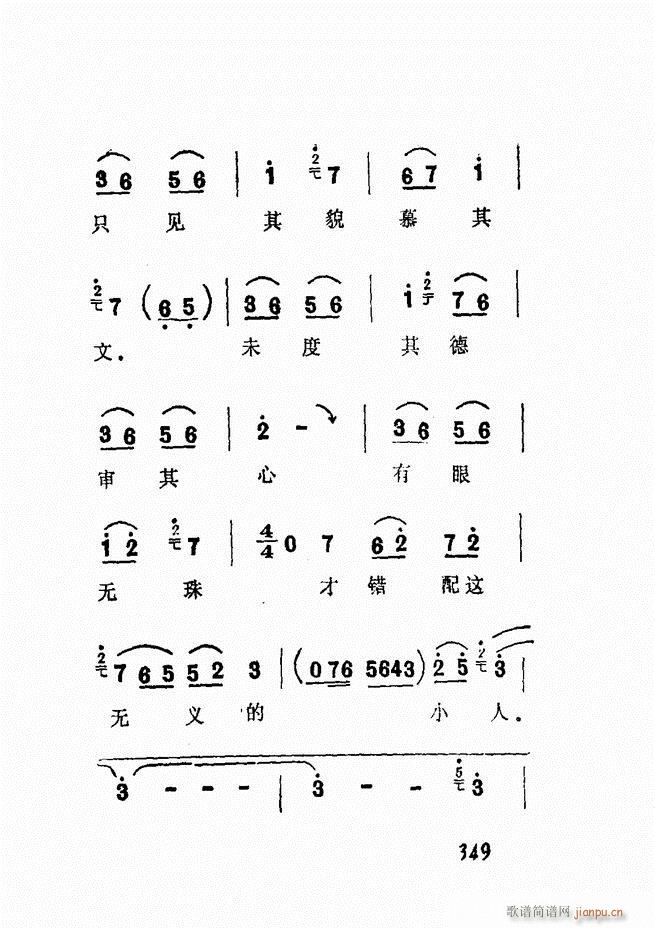 3 6 5 6 | i 2 7 | 6 7 i |
只 见 其 貌 慕 其
2 7 ( 6 5 ) | 3 6 5 6 | i 2 7 6 |
文. 未 度 其 德
3 6 5 6 | 2 - | 3 6 5 6 |
审 其 心 有 眼
i 2 2 7 | 4/4 0 7 6 2 7 2 |
无 珠 才 错 配 这
2 7 6 5 5 2 3 | ( 0 7 6 5 6 4 3 ) 2 5 2 3 |
无 义 的 小 人.
3 - - - | 3 - - 5 3 |
349
歌谱简谱网 jianpu.cn